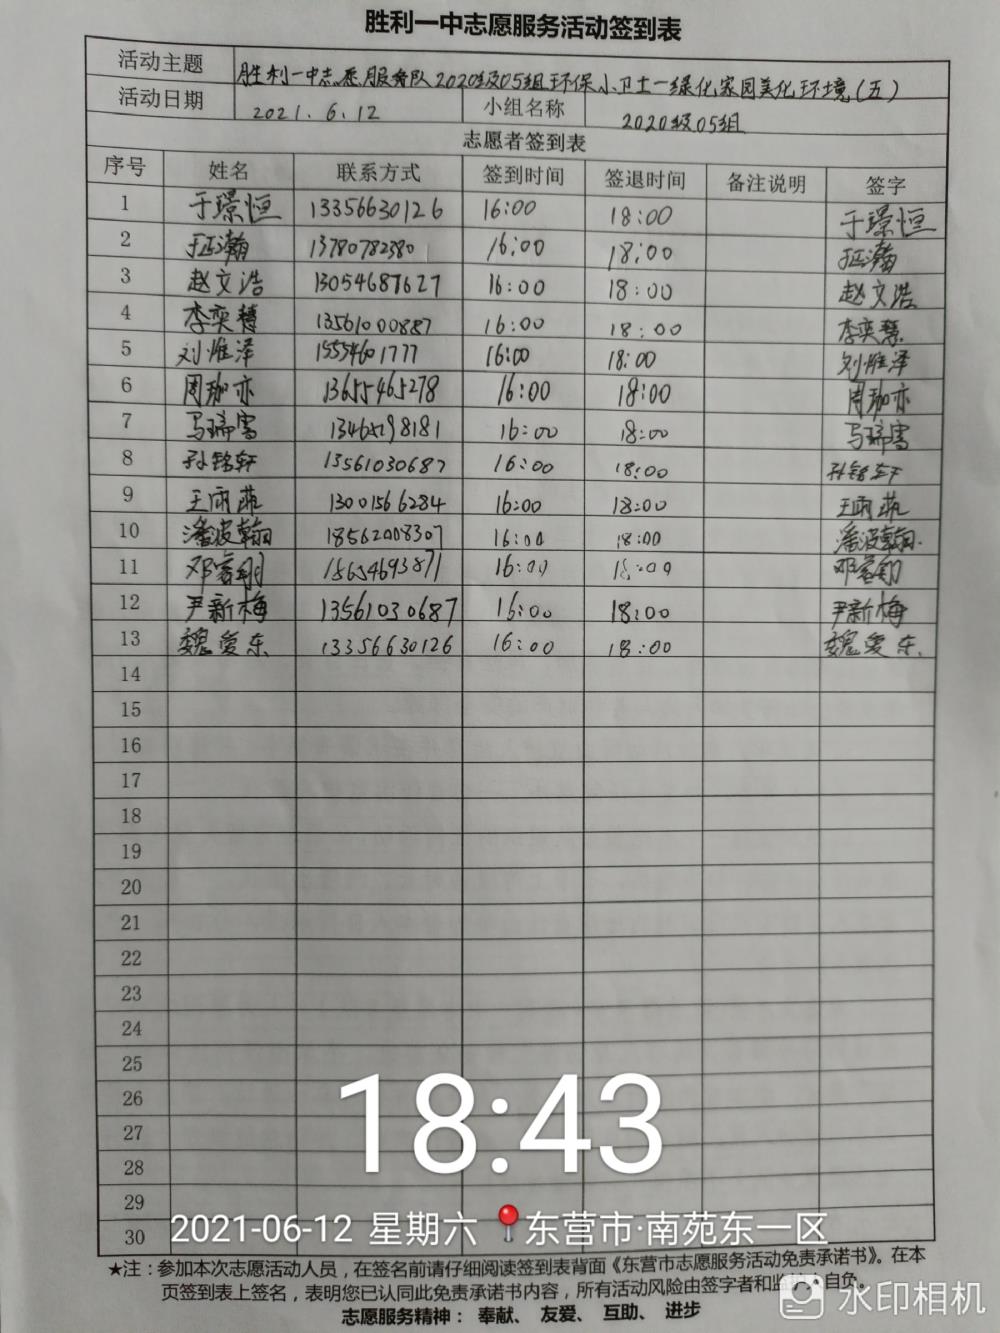 胜利一中志愿服务活动签到表
活动主题 胜利一中志愿服务队2020级05组环保小卫士—绿化家园美化环境(五)
活动日期 2021.6.12 小组名称 2020级05组
志愿者签到表
序号 姓名 联系方式 签到时间 签退时间 备注说明 签字
1 于璟恒 13356630126 16:00 18:00 于璟恒
2 13780782380 16:00 18:00
3 赵文浩 13054687627 16:00 18:00 赵文浩
4 李奕慧 13561000887 16:00 18:00 李奕慧
5 刘惟泽 15554601777 16:00 18:00 刘惟泽
6 周珈亦 13655465278 16:00 18:00 周珈亦
7 马瑞雪 16:00 18:00 马瑞雪
8 孙铭轩 13561030687 16:00 18:00 孙铭轩
9 王雨菲 13001566284 16:00 18:00 王雨菲
10 潘波翰 18562008307 16:00 18:00 潘波翰
11 邓睿翔 18654693871 16:00 18:00 邓睿翔
12 尹新梅 13561030687 16:00 18:00 尹新梅
13 魏爱东 13356630126 16:00 18:00 魏爱东
14
15
16
17
18
19
20
21
22
23
24
25
26
27
28
29
30
18:43
2021-06-12 星期六 东营市·南苑东一区
★注:参加本次志愿活动人员,在签名前请仔细阅读签到表背面《东营市志愿服务活动免责承诺书》。在本
页签到表上签名,表明您已认同此免责承诺书内容,所有活动风险由签字者和监护人自负。
志愿服务精神: 奉献、 友爱、 互助、 进步
水印相机